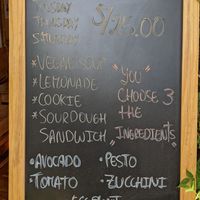 TUSDAY
THURSDAY
SATURDAY
S/25.00
*VEGAN SOUP
*LEMONADE
*COOKIE
*SOURDOUGH
SANDWICH
"YOU
CHOOSE 3
THE
INGREDIENTS"
•AVOCADO
•PESTO
•TOMATO
•ZUCCHINI